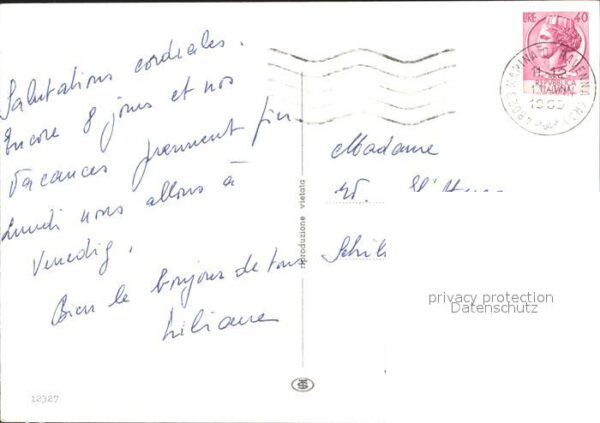 Salutations cordiales.
Encore 8 jours et nos
Vacances prennent fin
Lundi nous allons à
Venedig.
Bien le bonjour de tous
Liliane
Madame
riproduzione vietata
LIRE 40
REPUBBLICA
ITALIANA
MARINA DI RAVENNA
privacy protection
Datenschutz
12327